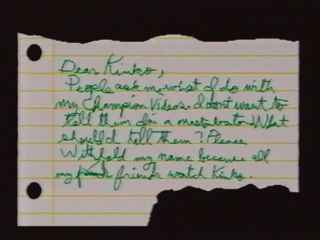 Dear Kinko,
People ask me what I do with
my Champion Videos. I dont want to
tell them Im a masterbator. What
should I tell them? Please
Withhold my name because all
my friends watch Kinko.